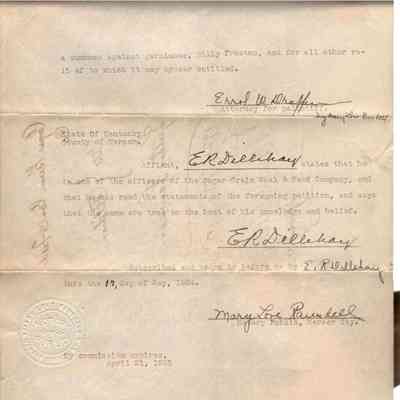 a summons against garnishee, Billy Preston, and for all other re-
lief to which it may appear entitled.
Errol W Draffen
Attorney for
State Of Kentucky
County of Mercer.
Affiant, E R Dillehay states that he
is one of the officers of the Sugar Grain Meal & Feed Company, and
that he has read the statements of the foregoing petition, and says
that the same are true to the best of his knowledge and belief.
E R Dillehay
Subscribed and sworn to before me by E. R Dillehay
this the 17, day of May, 1924.
Mary Love
Notary Public, Mercer Cty.
My commission expires.
April 21, 1925